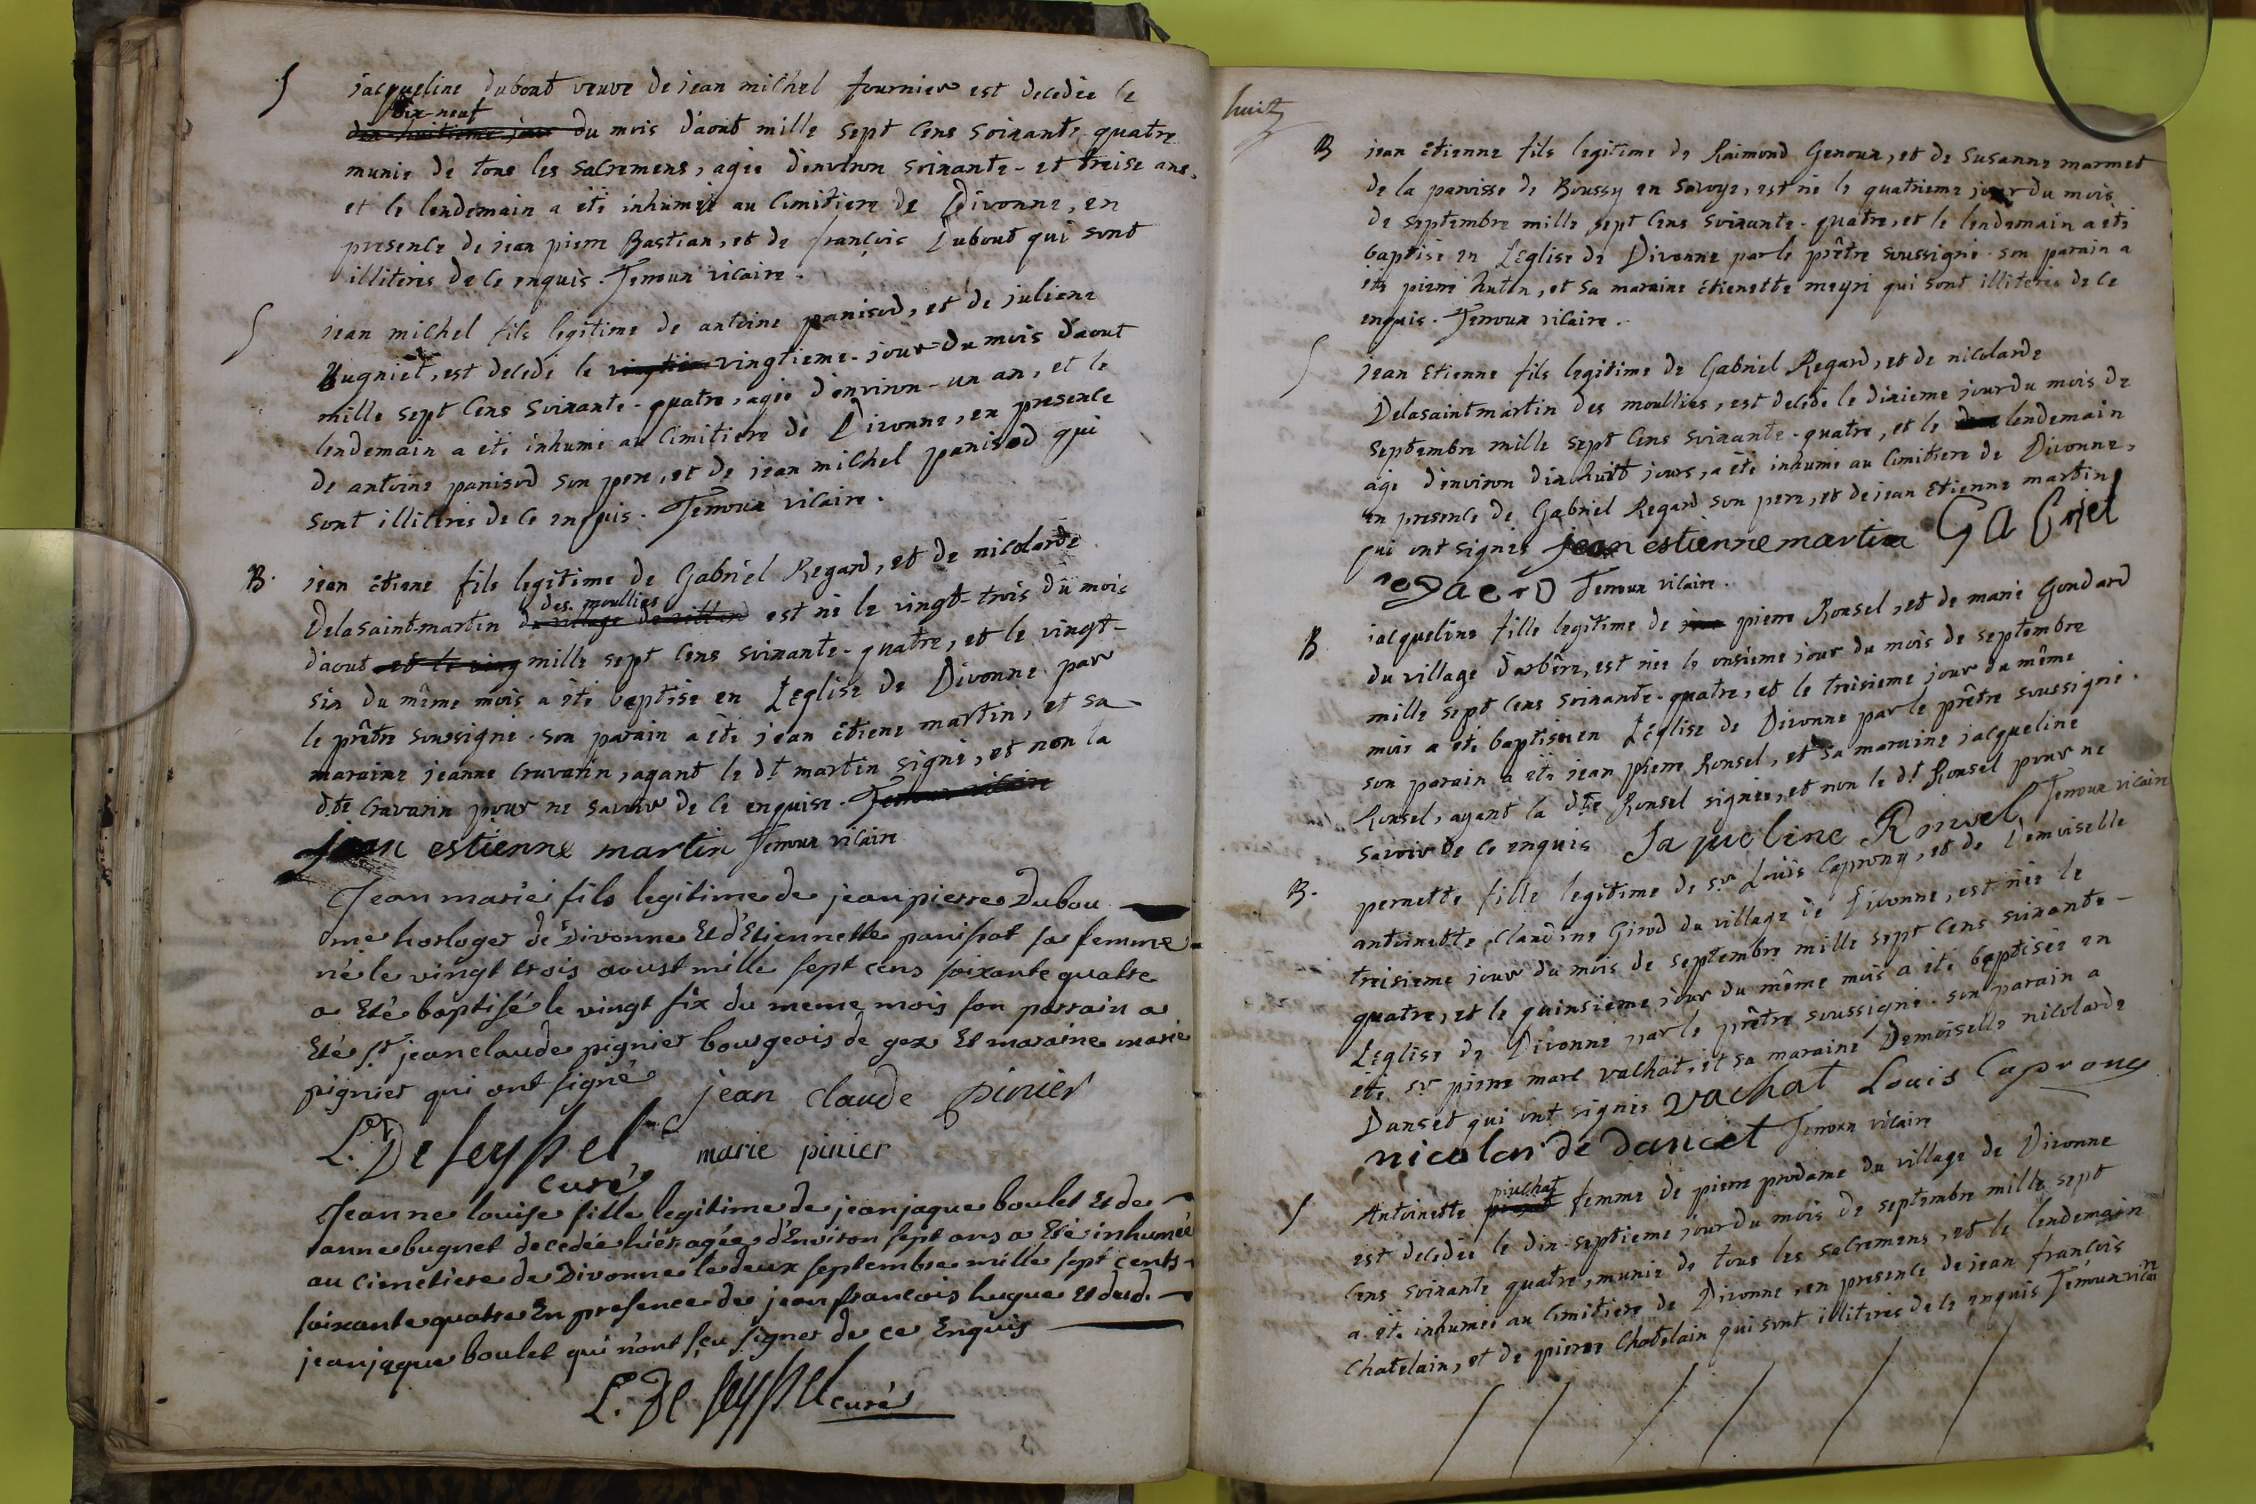 S
jacqueline dubout veuve de jean michel fournier est decedée le
dix-neuf
dix-huitieme jour du mois d'aout mille sept cens soixante-quatre
munie de tous les sacremens, agée d'environ soixante-et treise ans,
et le lendemain a été inhumée au cimitiere de Divonne, en
presence de jean pierre Bastian, et de françois Dubout qui sont
illiterés de ce enquis. Temoux vicaire.
S
jean michel fils legitime de antoine panisod, et de juliene
Hugniet, est decedé le vingtiem vingtieme jour du mois d'aout
mille sept cens soixante-quatre, agée d'environ-un an, et le
lendemain a été inhumé au cimitiere de Divonne, en presence
de antoine panisod son pere, et de jean michel panisod qui
sont illiterés de ce enquis. Temoux vicaire.
B.
jean étiene fils legitime de Gabriel Regard, et de nicolarde
des moullies
Delasaint-martin du village de est né le vingt-trois du mois
d'aout et le ving mille sept cens soixante-quatre, et le vingt-
six du même mois a été baptisé en L'eglise de Divonne par
le prêtre soussigné. son parain a été jean étiene martin, et sa
maraine jeanne cravatin, ayant le dt martin signé, et non la
dte Cravatin pour ne savoir de ce enquise. Temoux vicaire
jean estienne martin Temoux vicaire
Jean marie fils legitime de jean pierre Dubou
me horloger de Divonne Et d'Etiennette panissat sa femme
né le vingt trois aoust mille sept cens soixante quatre
a Eté baptisé le vingt six du meme mois son parrain a
Eté sr jean claude pignier bourgeois de gex Et maraine marie
pignier qui ont signé jean claude pinier
L. De seyssel marie pinier
curé
Jeanne louise fille legitime de jean jaque boulet Et de
anne bugnet decedée hier agée d'Environ sept ans a Eté inhumée
au cimetiere de Divonne le deux septembre mille sept cents
soixante quatre En presence de jean francois hugue Et dud.
jean jaque boulet qui n'ont sçu signer de ce Enquis
L. De seyssel curé
huit
B
jean étienne fils legitime de Raimond Genoux, et de susanne marmet
de la paroisse de Boussy en savoye, est né le quatrieme jour du mois
de septembre mille sept cens soixante-quatre, et le lendemain a été
baptisé en L'Eglise de Divonne par le prêtre soussigné. son parain a
été pierre hutin, et sa maraine étienette meyri qui sont illiterés de ce
enquis. Temoux vicaire.
S
jean Etienne fils legitime de Gabriel Regard, et de nicolarde
Delasaintmartin des moullies, est decedé le dixieme jour du mois de
septembre mille sept cens soixante-quatre, et le lendemain
agé d'environ dix huit jours, a été inhumé au cimitiere de Divonne,
en presence de Gabriel Regard son pere, et de jean Etienne martin
qui ont signés jean estienne martin GAbriel
regaerd Temoux vicaire.
B
jacqueline fille legitime de pierre Ronsel, et de marie Gondard
du village d'arbère, est née le onsieme jour du mois de septembre
mille sept cens soixante-quatre, et le treisieme jour du même
mois a été baptisé en L'Eglise de Divonne par le prêtre soussigné.
son parain a été jean pierre Ronsel, et sa maraine jacqueline
Ronsel, ayant la dte Ronsel signée, et non le dt Ronsel pour ne
savoir de ce enquis Jaqueline Ronsel Temoux vicaire
B.
pernette fille legitime de sr Louis Caprony, et de Demoiselle
antoinette Claudine Girod du village de Divonne, est née le
treisieme jour du mois de septembre mille sept cens soixante-
quatre, et le quinsieme jour du même mois a été baptisée en
L'eglise de Divonne par le prêtre soussigné. son parain a
été sr pierre marc vachat, et sa maraine Demoiselle nicolarde
Danset qui ont signés vachat Louis Caprony
nicolarde dancet Temoux vicaire
S
piuchat
Antoinette femme de pierre prodame du village de Divonne
est decedée le dix-septieme jour du mois de septembre mille sept
cens soixante quatre, munie de tous les sacremens, et le lendemain
a été inhumée au cimitiere de Divonne, en presence de jean francois
Chatelain, et de pierre Chatelain qui sont illiterés de ce enquis Temoux vicaire